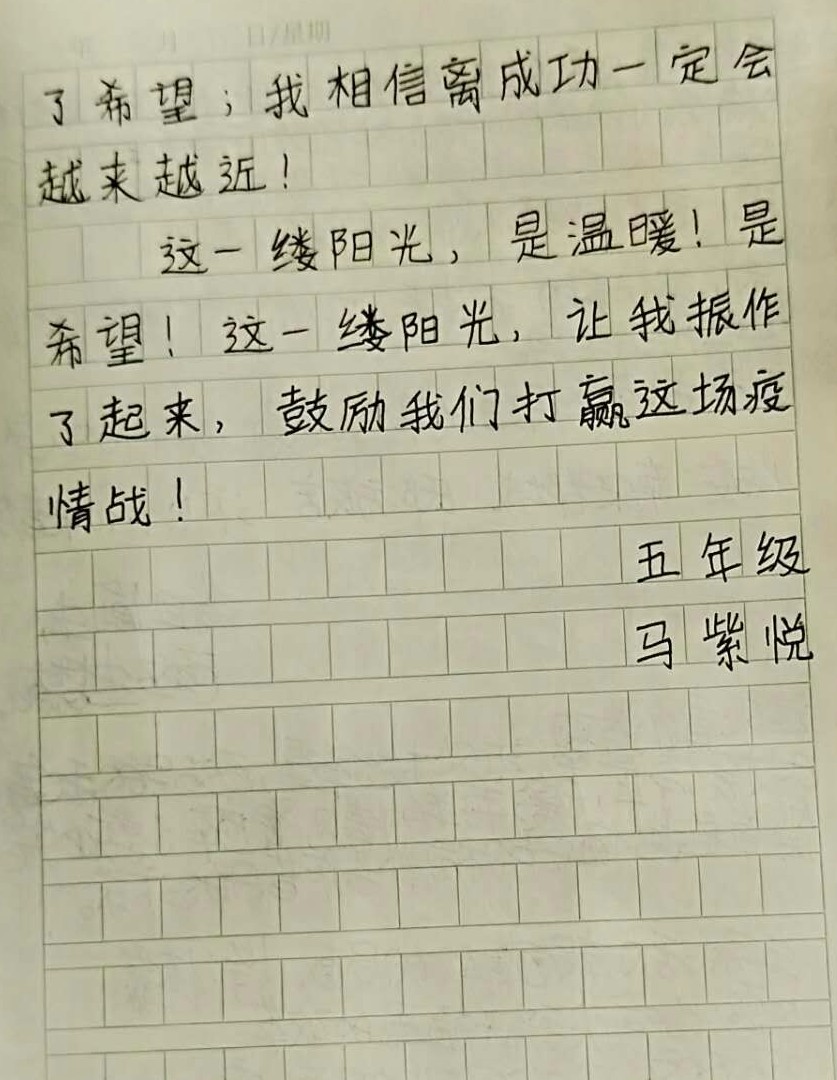 了希望；我相信离成功一定会
越来越近！
这一缕阳光，是温暖！是
希望！这一缕阳光，让我振作
了起来，鼓励我们打赢这场疫
情战！
五年级
马紫悦